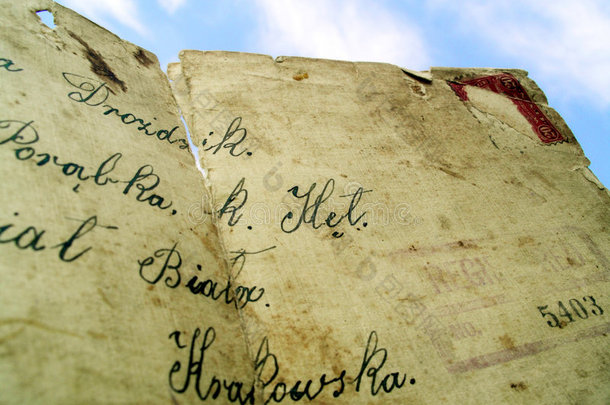 a Drozdzik.
Porąbka. k. Kęt.
iat Biała.
Krakowska.
NO. 5403